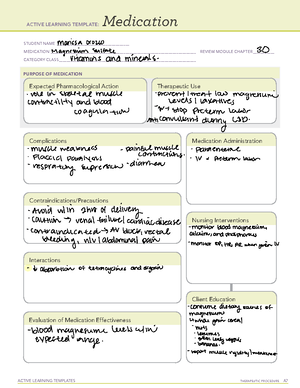 ACTIVE LEARNING TEMPLATE: Medication
STUDENT NAME Marissa Orozco
MEDICATION Magnesium Sulfate REVIEW MODULE CHAPTER 30
CATEGORY CLASS Vitamins and minerals
PURPOSE OF MEDICATION
Expected Pharmacological Action
- role in skeletal muscle
contractility and blood
coagulation
Therapeutic Use
- prevent/treat low magnesium
levels / laxatives
- IV stop preterm labor
anticonvulsant during L&D
Complications
- muscle weakness
- flaccid paralysis
- respiratory
- painful muscle
contractions
- diarrhea
Medication Administration
- parenteral
- IV preterm labor
Contraindications/Precautions
- Avoid w/in 2hrs of delivery
- caution → renal failure/cardiac disease
- contraindicated → AV block, rectal
bleeding, n/v/abdominal pain
Nursing Interventions
- monitor blood magnesium,
calcium, and phosphorus
- monitor BP, HR, RR when given IV
Interactions
- ↓ absorption of tetracyclines and digoxin
Client Education
- consume dietary sources of
magnesium
- whole grain cereal
- nuts
- legumes
- green leafy veggies
- bananas
- report muscle rigidity/weakness
Evaluation of Medication Effectiveness
- blood magnesium levels w/in
expected range.
ACTIVE LEARNING TEMPLATES THERAPEUTIC PROCEDURE A7